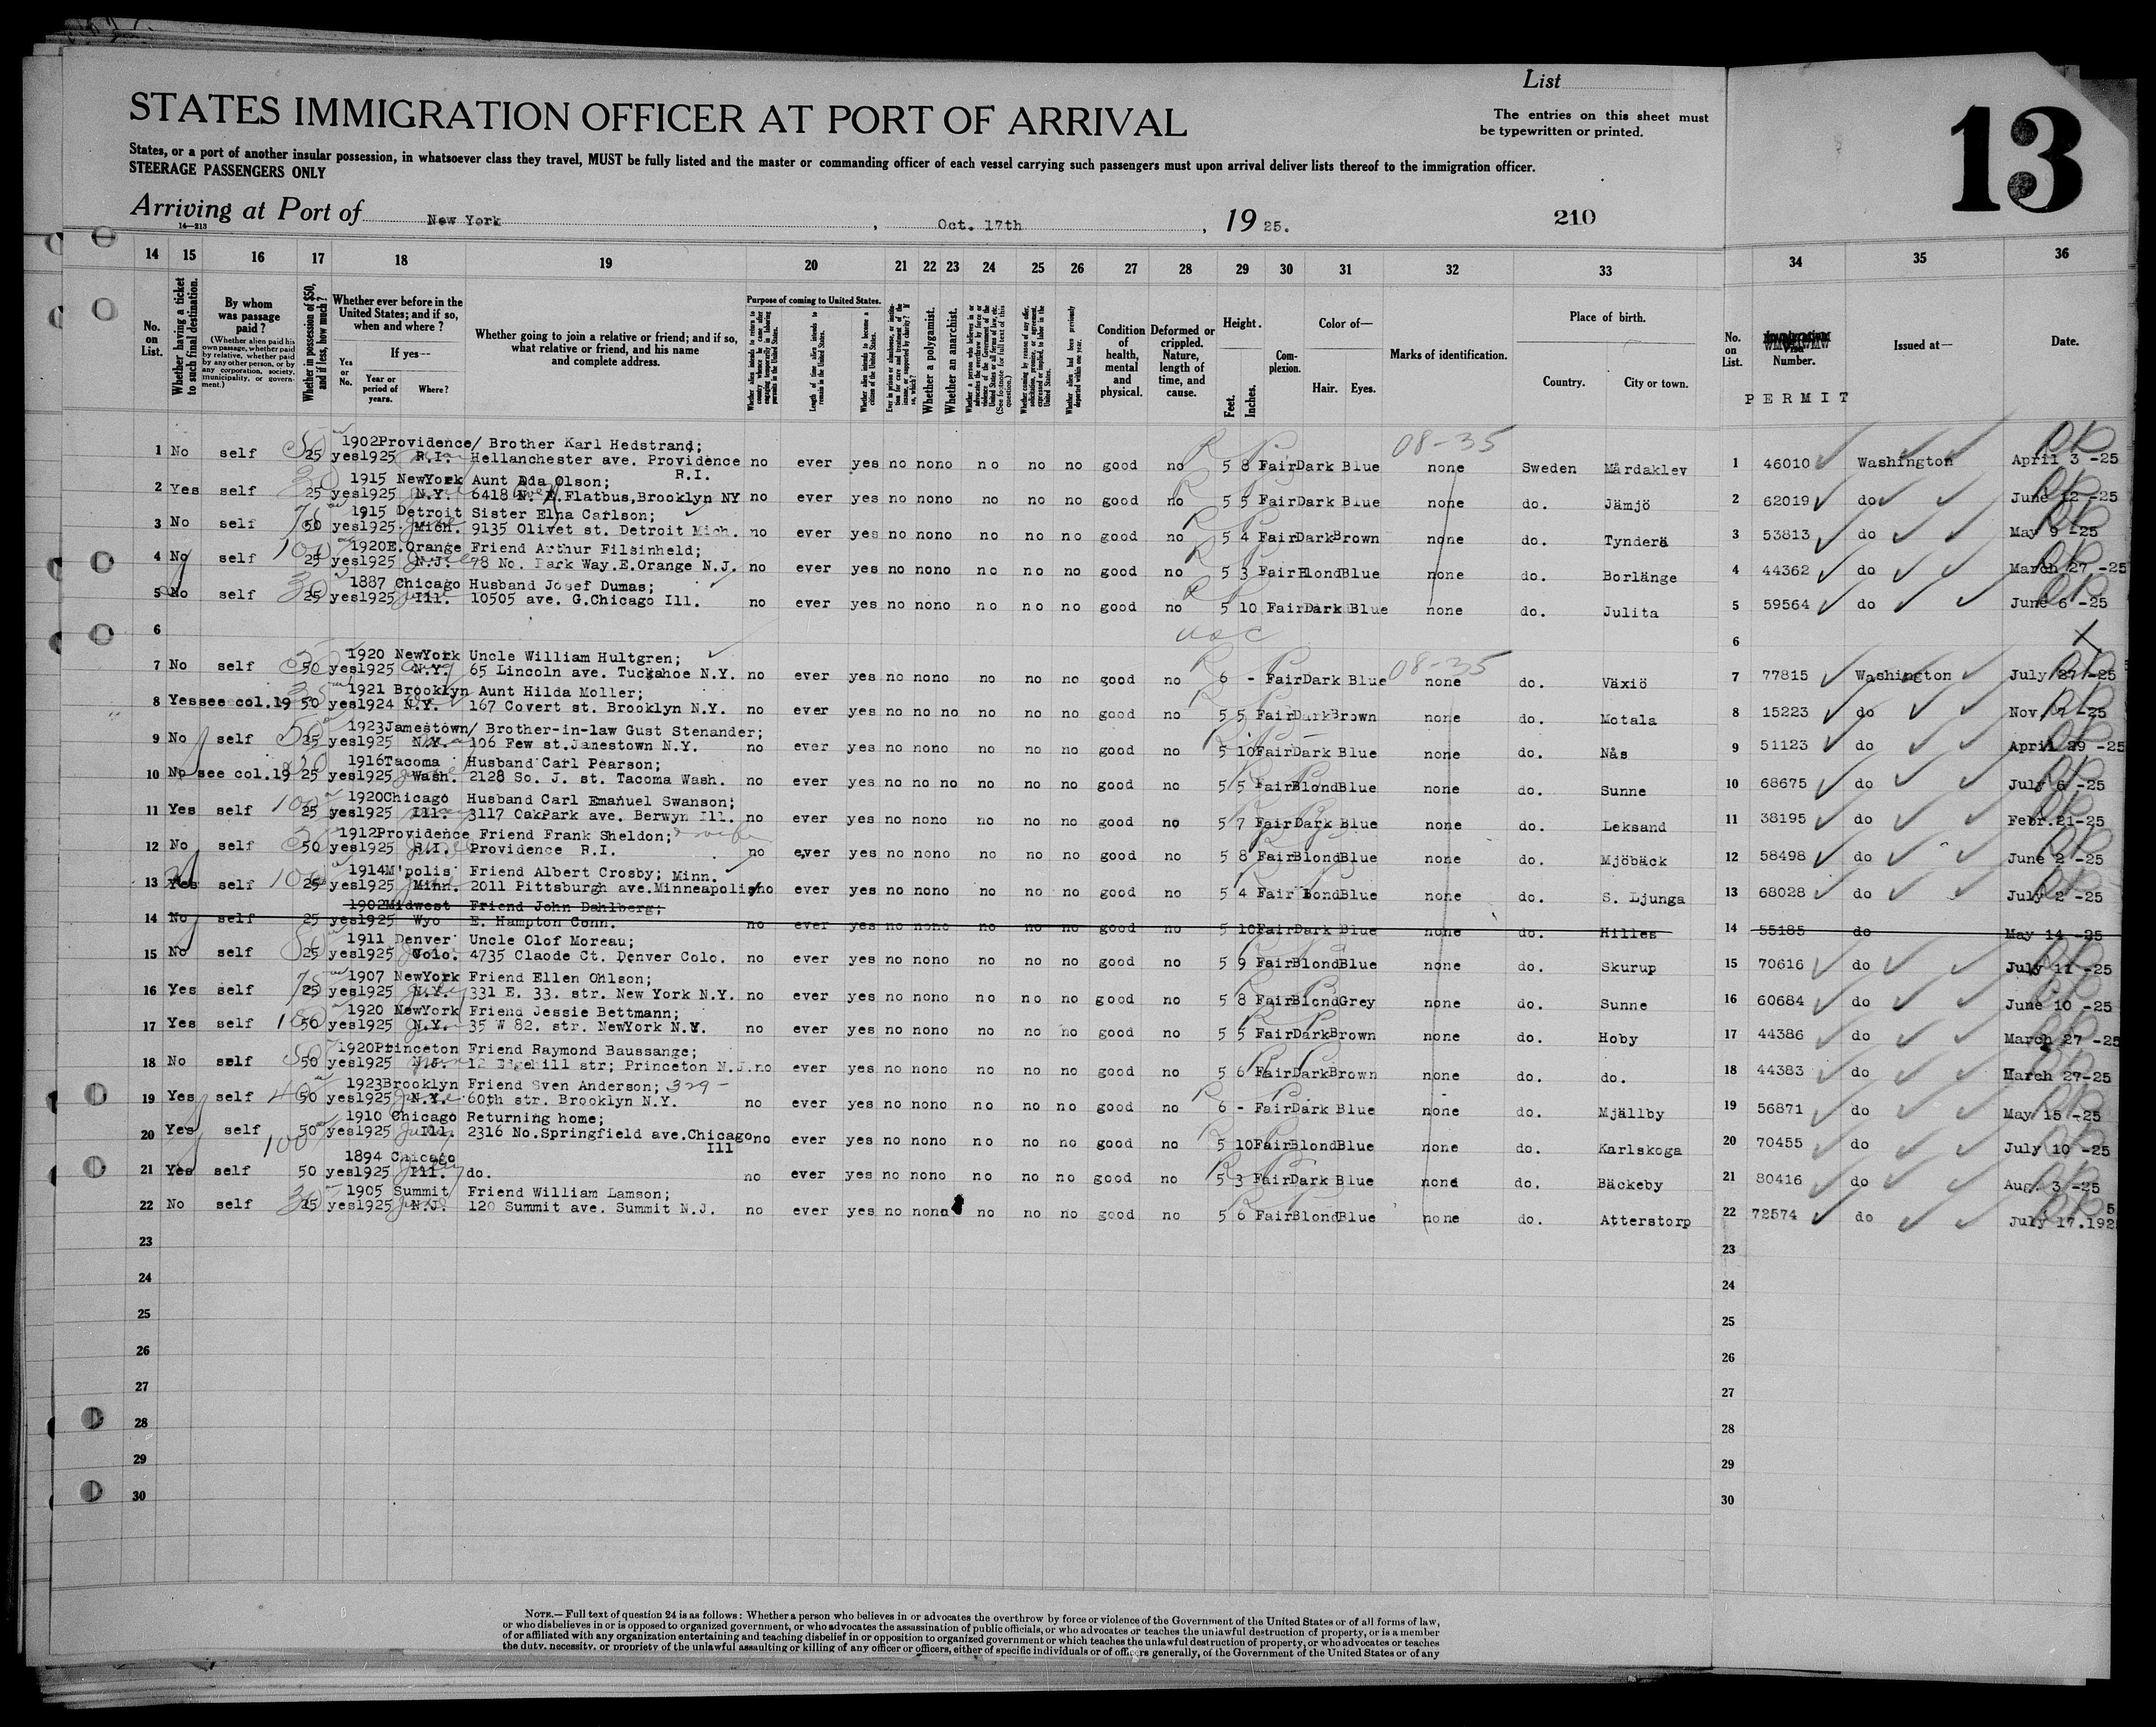 List
13
STATES IMMIGRATION OFFICER AT PORT OF ARRIVAL
The entries on this sheet must
be typewritten or printed.
States, or a port of another insular possession, in whatsoever class they travel, MUST be fully listed and the master or commanding officer of each vessel carrying such passengers must upon arrival deliver lists thereof to the immigration officer.
STEERAGE PASSENGERS ONLY
Arriving at Port of New York, Oct. 17th, 19 25. 210
14—213
14 15 16 17 18 19 20 21 22 23 24 25 26 27 28 29 30 31 32 33 34 35 36
No. on List.
Whether having a ticket to such final destination.
By whom was passage paid?
(Whether alien paid his own passage, whether paid by relative, whether paid by any other person, or by any corporation, society, municipality, or government.)
Whether in possession of $50, and if less, how much?
Whether ever before in the United States; and if so, when and where?
If yes—
Yes or No.
Year or period of years.
Where?
Whether going to join a relative or friend; and if so, what relative or friend, and his name and complete address.
Purpose of coming to United States.
Length of time alien intends to remain in the United States.
Whether alien intends to become a citizen of the United States.
Whether a polygamist.
Whether an anarchist.
Condition of health, mental and physical.
Deformed or crippled. Nature, length of time, and cause.
Height.
Feet. Inches.
Complexion.
Color of—
Hair. Eyes.
Marks of identification.
Place of birth.
Country. City or town.
No. on List.
Number.
PERMIT
Issued at—
Date.
08-35
1902Providence/ Brother Karl Hedstrand;
1 No self 25 yes1925 R.I. Hellanchester ave. Providence no ever yes no nono no no no good no 5 8 FairDark Blue none Sweden Mårdaklev 1 46010 Washington April 3 -25
R.I.
1915 NewYork Aunt Ada Olson;
2 Yes self 25 yes1925 N.Y. 6418 Flatbus,Brooklyn NY no ever yes no nono no no no good no 5 5 FairDark Blue none do. Jämjö 2 62019 do June 12 -25
1915 Detroit Sister Elna Carlson;
3 No self 50 yes1925 Mich. 9135 Olivet st. Detroit Mich. no ever yes no nono no no no good no 5 4 FairDarkBrown none do. Tynderö 3 53813 do May 9 -25
1920E.Orange Friend Arthur Filsinheld;
4 No self 25 yes1925 N.J. 78 No. Park Way.E.Orange N.J. no ever yes no nono no no no good no 5 3 FairBlondBlue none do. Borlänge 4 44362 do March 27 -25
1887 Chicago Husband Josef Dumas;
5 No self 25 yes1925 Ill. 10505 ave. G.Chicago Ill. no ever yes no nono no no no good no 5 10 FairDark Blue none do. Julita 5 59564 do June 6 -25
6 USC 6
08-35
1920 NewYork Uncle William Hultgren;
7 No self 50 yes1925 N.Y. 65 Lincoln ave. Tuckahoe N.Y. no ever yes no nono no no no good no 6 - FairDark Blue none do. Växiö 7 77815 Washington July 27 -25
1921 Brooklyn Aunt Hilda Moller;
8 Yes see col.19 50 yes1924 N.Y. 167 Covert st. Brooklyn N.Y. no ever yes no no no no no no good no 5 5 FairDarkBrown none do. Motala 8 15223 do Nov. -25
1923Jamestown/ Brother-in-law Gust Stenander;
9 No self 25 yes1925 N.Y. 106 Few st.Janestown N.Y. no ever yes no nono no no no good no 5 10FairDark Blue none do. Nås 9 51123 do April 29 -25
1916Tacoma Husband Carl Pearson;
10 No see col.19 25 yes1925 Wash. 2128 So. J. st. Tacoma Wash. no ever yes no no no no no no good no 5 5 FairBlondBlue none do. Sunne 10 68675 do July 6 -25
1920Chicago Husband Carl Emanuel Swanson;
11 Yes self 25 yes1925 Ill. 3117 OakPark ave. Berwyn Ill. no ever yes no nono no no no good no 5 7 FairDark Blue none do. Leksand 11 38195 do Febr.21-25
1912Providence Friend Frank Sheldon; wife
12 No self 50 yes1925 R.I. Providence R.I. no ever yes no nono no no no good no 5 8 FairBlondBlue none do. Mjöbäck 12 58498 do June 2 -25
1914M'polis Friend Albert Crosby; Minn.
13 Yes self 25 yes1925 Minn. 2011 Pittsburgh ave.Minneapolis/no ever yes no nono no no no good no 5 4 Fair BondBlue none do. S. Ljunga 13 68028 do July 2 -25
1902Midwest Friend John Dahlberg;
14 No self 25 yes1925 Wyo E. Hampton Conn. no ever yes no nono no no no good no 5 10FairDark Blue none do. Hilles 14 55185 do May 14 -25
1911 Denver Uncle Olof Moreau;
15 No self 25 yes1925 Colo. 4735 Claode Ct. Denver Colo. no ever yes no nono no no no good no 5 9 FairBlondBlue none do. Skurup 15 70616 do July 11 -25
1907 NewYork Friend Ellen Ohlson;
16 Yes self 25 yes1925 N.Y. 331 E. 33. str. New York N.Y. no ever yes no nono no no no good no 5 8 FairBlondGrey none do. Sunne 16 60684 do June 10 -25
1920 NewYork Friend Jessie Bettmann;
17 Yes self 50 yes1925 N.Y. 35 W 82. str. NewYork N.Y. no ever yes no nono no no no good no 5 5 FairDarkBrown none do. Hoby 17 44386 do March 27 -25
1920Princeton Friend Raymond Baussange;
18 No self 50 yes1925 N.J. 12 Edgehill str; Princeton N.J.no ever yes no nono no no no good no 5 6 FairDarkBrown none do. do. 18 44383 do March 27-25
1923Brooklyn Friend Sven Anderson; 329-
19 Yes self 50 yes1925 N.Y. 60th str. Brooklyn N.Y. no ever yes no nono no no no good no 6 - FairDark Blue none do. Mjällby 19 56871 do May 15 -25
1910 Chicago Returning home;
20 Yes self 50 yes1925 Ill. 2316 No.Springfield ave.Chicago no ever yes no nono no no no good no 5 10FairBlondBlue none do. Karlskoga 20 70455 do July 10 -25
Ill
1894 Chicago
21 Yes self 50 yes1925 Ill. do. no ever yes no nono no no no good no 5 3 FairDark Blue none do. Bäckeby 21 80416 do Aug. 3 -25
1905 Summit Friend William Lamson;
22 No self yes1925 N.J. 120 Summit ave. Summit N.J. no ever yes no nono no no no good no 5 6 FairBlondBlue none do. Atterstorp 22 72574 do July 17.1925
23 23
24 24
25 25
26 26
27 27
28 28
29 29
30 30
NOTE.—Full text of question 24 is as follows: Whether a person who believes in or advocates the overthrow by force or violence of the Government of the United States or of all forms of law,
or who disbelieves in or is opposed to organized government, or who advocates the assassination of public officials, or who advocates or teaches the unlawful destruction of property, or is a member
of or affiliated with any organization entertaining and teaching disbelief in or opposition to organized government or which teaches the unlawful destruction of property, or who advocates or teaches
the duty, necessity, or propriety of the unlawful assaulting or killing of any officer or officers, either of specific individuals or of officers generally, of the Government of the United States or of any